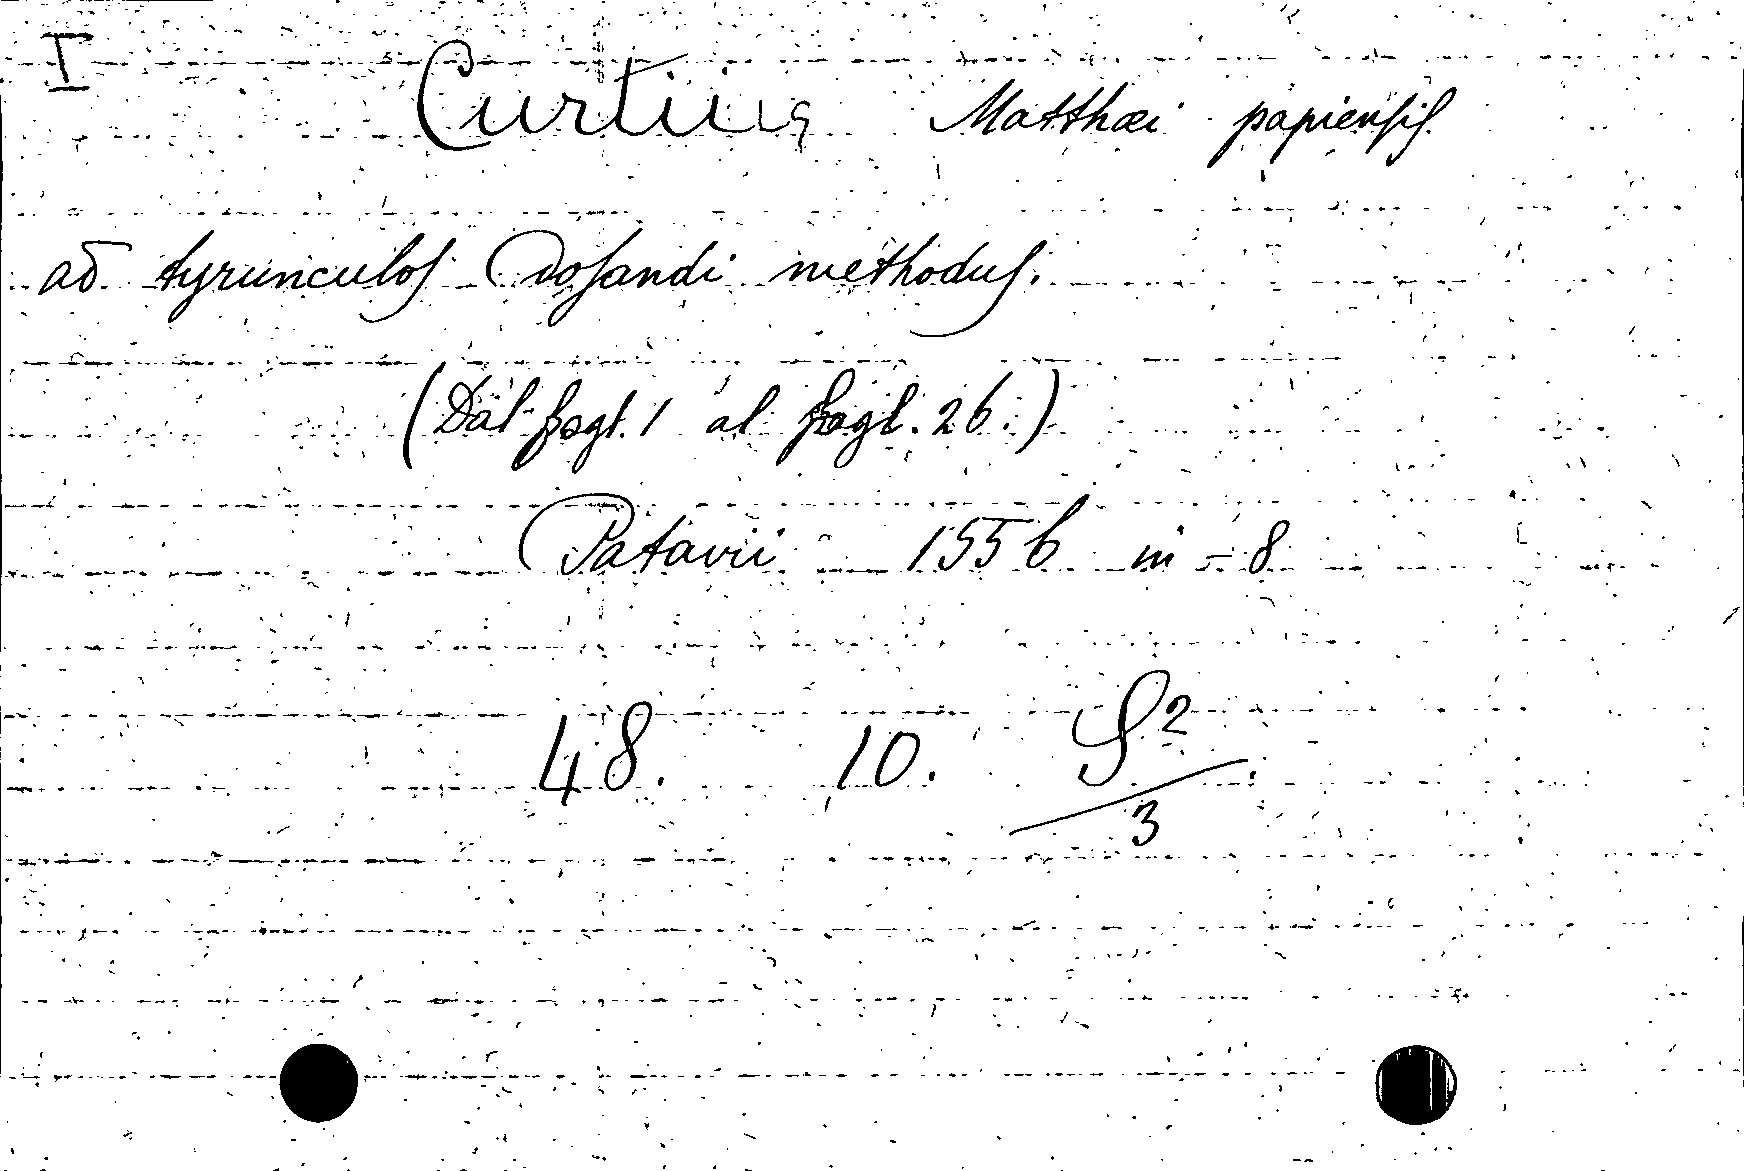 I
Curtius Matthæi papiensis
ad tyrunculos dosandi methodus.
(Dal fogl. 1 al fogl. 26.)
Patavii 1556 in-8
48. 10. S²/3